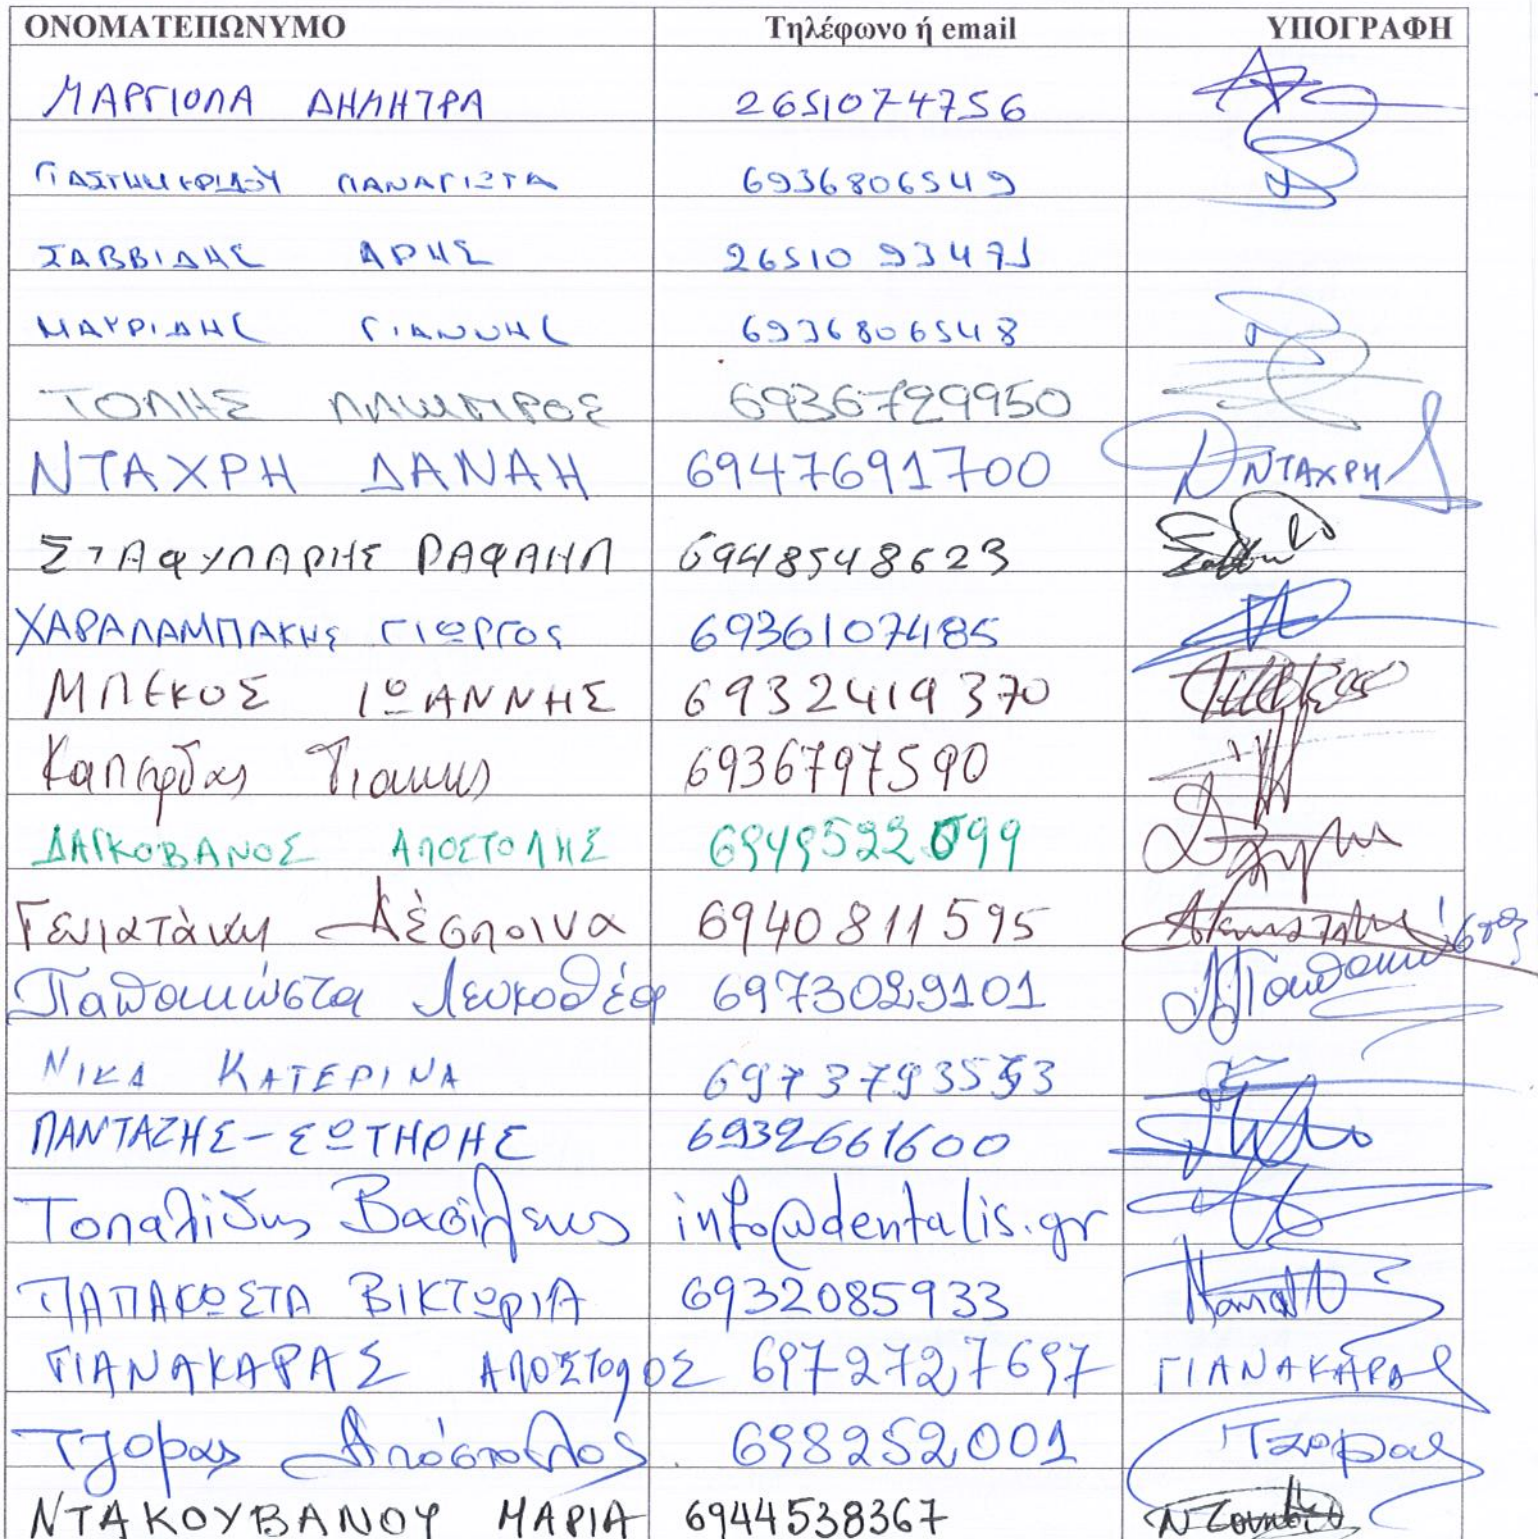 ΟΝΟΜΑΤΕΠΩΝΥΜΟ Τηλέφωνο ή email ΥΠΟΓΡΑΦΗ
ΜΑΡΓΙΟΛΑ ΔΗΜΗΤΡΑ 2651074756
ΠΑΝΑΓΙΩΤΑ 6936806549
ΣΑΒΒΙΔΗΣ ΑΡΗΣ 26510 93471
ΜΑΥΡΙΔΗΣ ΓΙΑΝΝΗΣ 6936806548
ΤΟΛΗΣ ΛΑΜΠΡΟΣ 6936729950
ΝΤΑΧΡΗ ΔΑΝΑΗ 6947691700 ΝΤΑΧΡΗ Δ
ΣΤΑΦΥΛΑΡΗΣ ΡΑΦΑΗΛ 6948548623
ΧΑΡΑΛΑΜΠΑΚΗΣ ΓΙΩΡΓΟΣ 6936107485
ΜΠΕΚΟΣ ΙΩΑΝΝΗΣ 6932419370
Γιαννης 6936797590
ΔΑΓΚΟΒΑΝΟΣ ΑΠΟΣΤΟΛΗΣ
Δέσποινα 6940811595
Παπακώστα Λευκοθέα 6973029101
ΝΙΚΑ ΚΑΤΕΡΙΝΑ
ΠΑΝΤΑΖΗΣ - ΣΩΤΗΡΗΣ 6932661600
Τοπαλίδης Βασίλειος info@dentalis.gr
ΠΑΠΑΚΩΣΤΑ ΒΙΚΤΩΡΙΑ 6932085933
ΓΙΑΝΑΚΑΡΑΣ ΑΠΟΣΤΟΛΟΣ 6972727697 ΓΙΑΝΑΚΑΡΑΣ
Τζορας Απόστολος 698252001 Τζορας
ΝΤΑΚΟΥΒΑΝΟΥ ΜΑΡΙΑ 6944538367